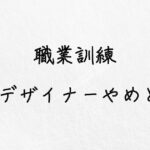 職業訓練
デザイナーやめと